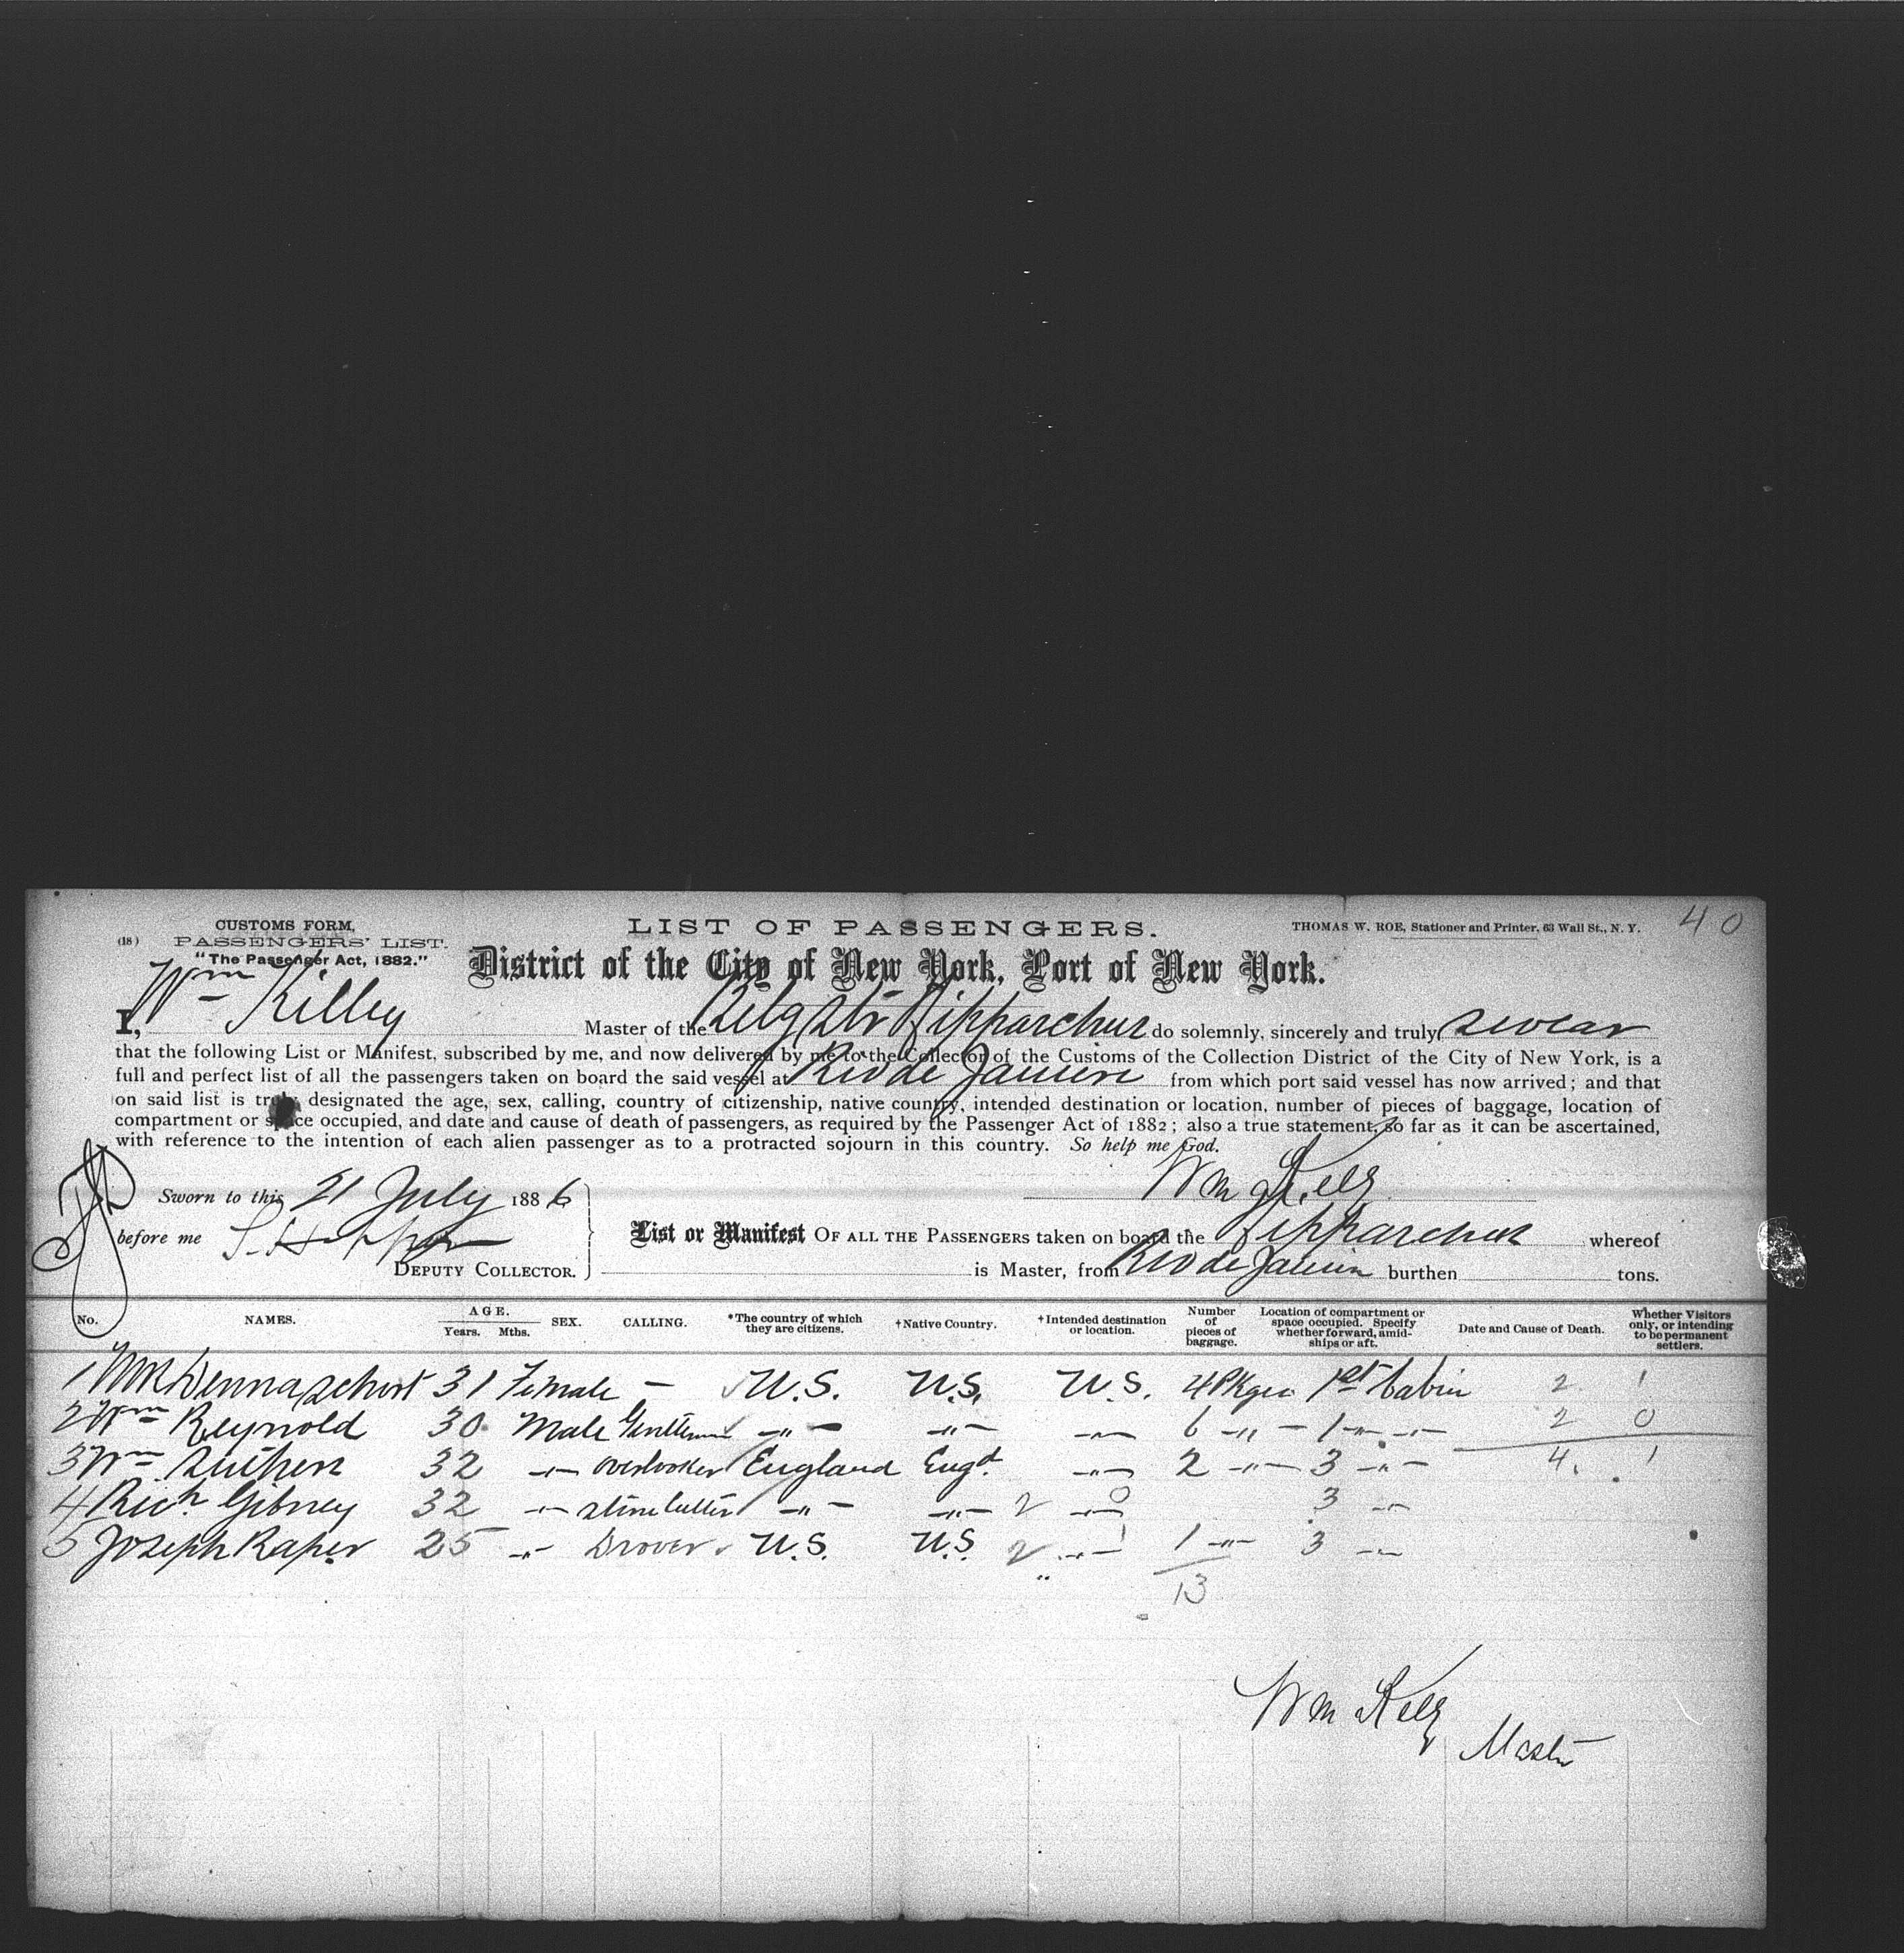 40
CUSTOMS FORM, LIST OF PASSENGERS. THOMAS W. ROE, Stationer and Printer, 63 Wall St., N. Y.
(18) PASSENGERS' LIST.
"The Passenger Act, 1882." District of the City of New York, Port of New York.
I, Wm Killey Master of the Belg Str Hipparchus do solemnly, sincerely and truly swear
that the following List or Manifest, subscribed by me, and now delivered by me to the Collector of the Customs of the Collection District of the City of New York, is a
full and perfect list of all the passengers taken on board the said vessel at Rio de Janeiro from which port said vessel has now arrived; and that
on said list is truly designated the age, sex, calling, country of citizenship, native country, intended destination or location, number of pieces of baggage, location of
compartment or space occupied, and date and cause of death of passengers, as required by the Passenger Act of 1882; also a true statement, so far as it can be ascertained,
with reference to the intention of each alien passenger as to a protracted sojourn in this country. So help me God.
Wm Kelly
Sworn to this 21 July 1886
before me
DEPUTY COLLECTOR.
List or Manifest OF ALL THE PASSENGERS taken on board the Hipparchus whereof
is Master, from Rio de Janeiro burthen tons.
No. NAMES. AGE. Years. Mths. SEX. CALLING. *The country of which they are citizens. †Native Country. †Intended destination or location. Number of pieces of baggage. Location of compartment or space occupied. Specify whether forward, amidships or aft. Date and Cause of Death. Whether Visitors only, or intending to be permanent settlers.
1 31 Female — U.S. U.S. U.S. 4 Pkges 1st Cabin 2 1
2 Wm Reynold 30 Male Gentleman -"- -"- -"- 6 -"- 1 -"- -"- 2 0
3 Wm 32 -"- Overlooker England Engd. -"- 2 -"- 3 -"- 4. 1
4 Rich. Gibney 32 -"- Stone Cutter -"- -"- 2 -"- 0 3 -"-
5 Joseph Raper 25 -"- Drover U.S. U.S. 2 -"- 1 1 -"- 3 -"-
13
Wm Kelly
Master